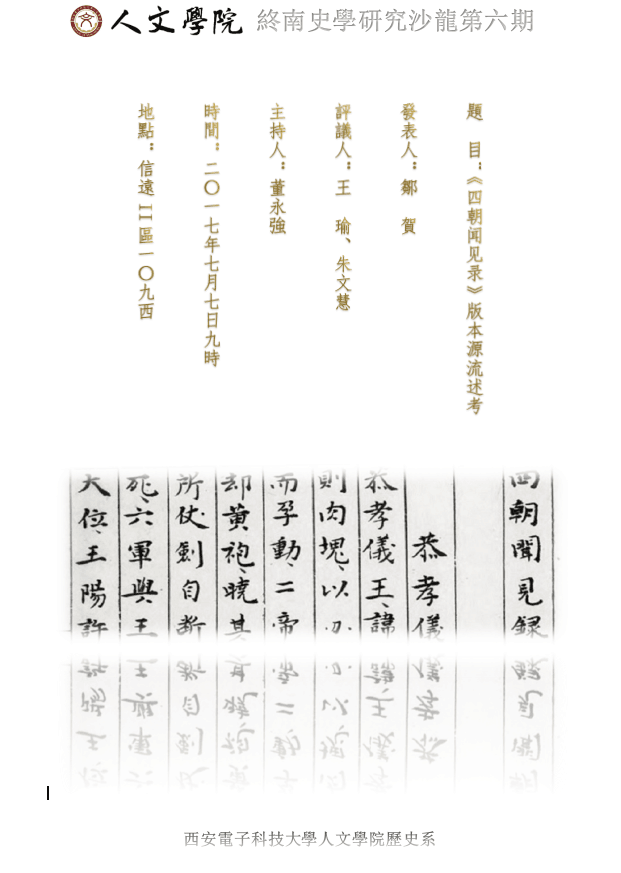 人文學院 終南史學研究沙龍第六期
題 目：《四朝闻见录》版本源流述考
發表人：鄒 賀
評議人：王 瑜、朱文慧
主持人：董永強
時間：二〇一七年七月七日九時
地點：信遠II區一〇九西
四朝聞見録
恭孝儀
恭孝儀王、諱
則肉塊、以刀
而孕動、二帝
却黄袍、曉其
所仗劍自斷
死、六軍與王
大位、王陽許
西安電子科技大學人文學院歷史系